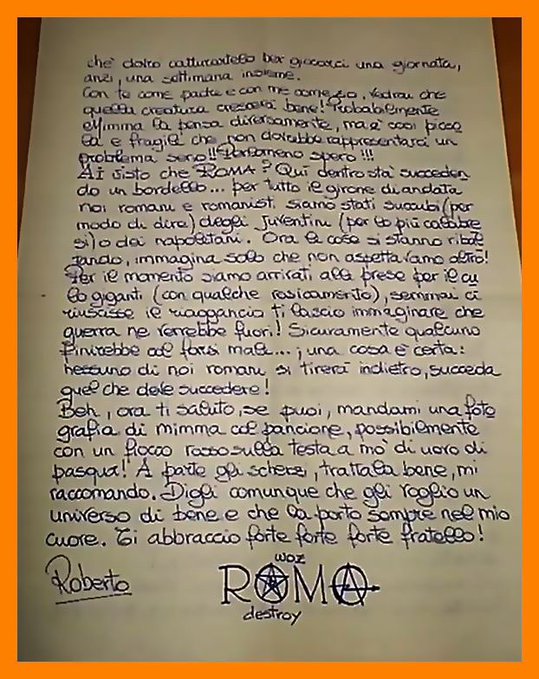 chè dovrò catturartelo per giocarci una giornata,
anzi, una settimana insieme.
Con te come padre e con me come zio, vedrai che
quella creatura crescerà bene! Probabilmente
Mimma la pensa diversamente, ma è così picco
la e fragile che non dovrebbe rappresentarci un
problema serio!! Perlomeno spero!!!
Ai visto che ROMA? Qui dentro sta' succeden
do un bordello... per tutto il girone di andata
noi romani e romanisti siamo stati succubi (per
modo di dire) degli Juventini (per lo più calabre
si) o dei napoletani. Ora le cose si stanno ribal
tando, immagina solo che non aspettavamo altro!
Per il momento siamo arrivati alle prese per il cu
lo giganti (con qualche rosicamento), semmai ci
riuscisse il riaggancio ti lascio immaginare che
guerra ne verrebbe fuori! Sicuramente qualcuno
finirebbe col farsi male...; una cosa è certa:
nessuno di noi romani si tirerà indietro, succeda
quel che deve succedere!
Beh, ora ti saluto, se puoi, mandami una foto
grafia di mimma col pancione, possibilmente
con un fiocco rosso sulla testa a mo' di uovo di
pasqua! A parte gli scherzi, trattala bene, mi
raccomando. Digli comunque che gli voglio un
universo di bene e che la porto sempre nel mio
cuore. Ti abbraccio forte forte forte fratello!
Roberto
woz
ROMA
destroy